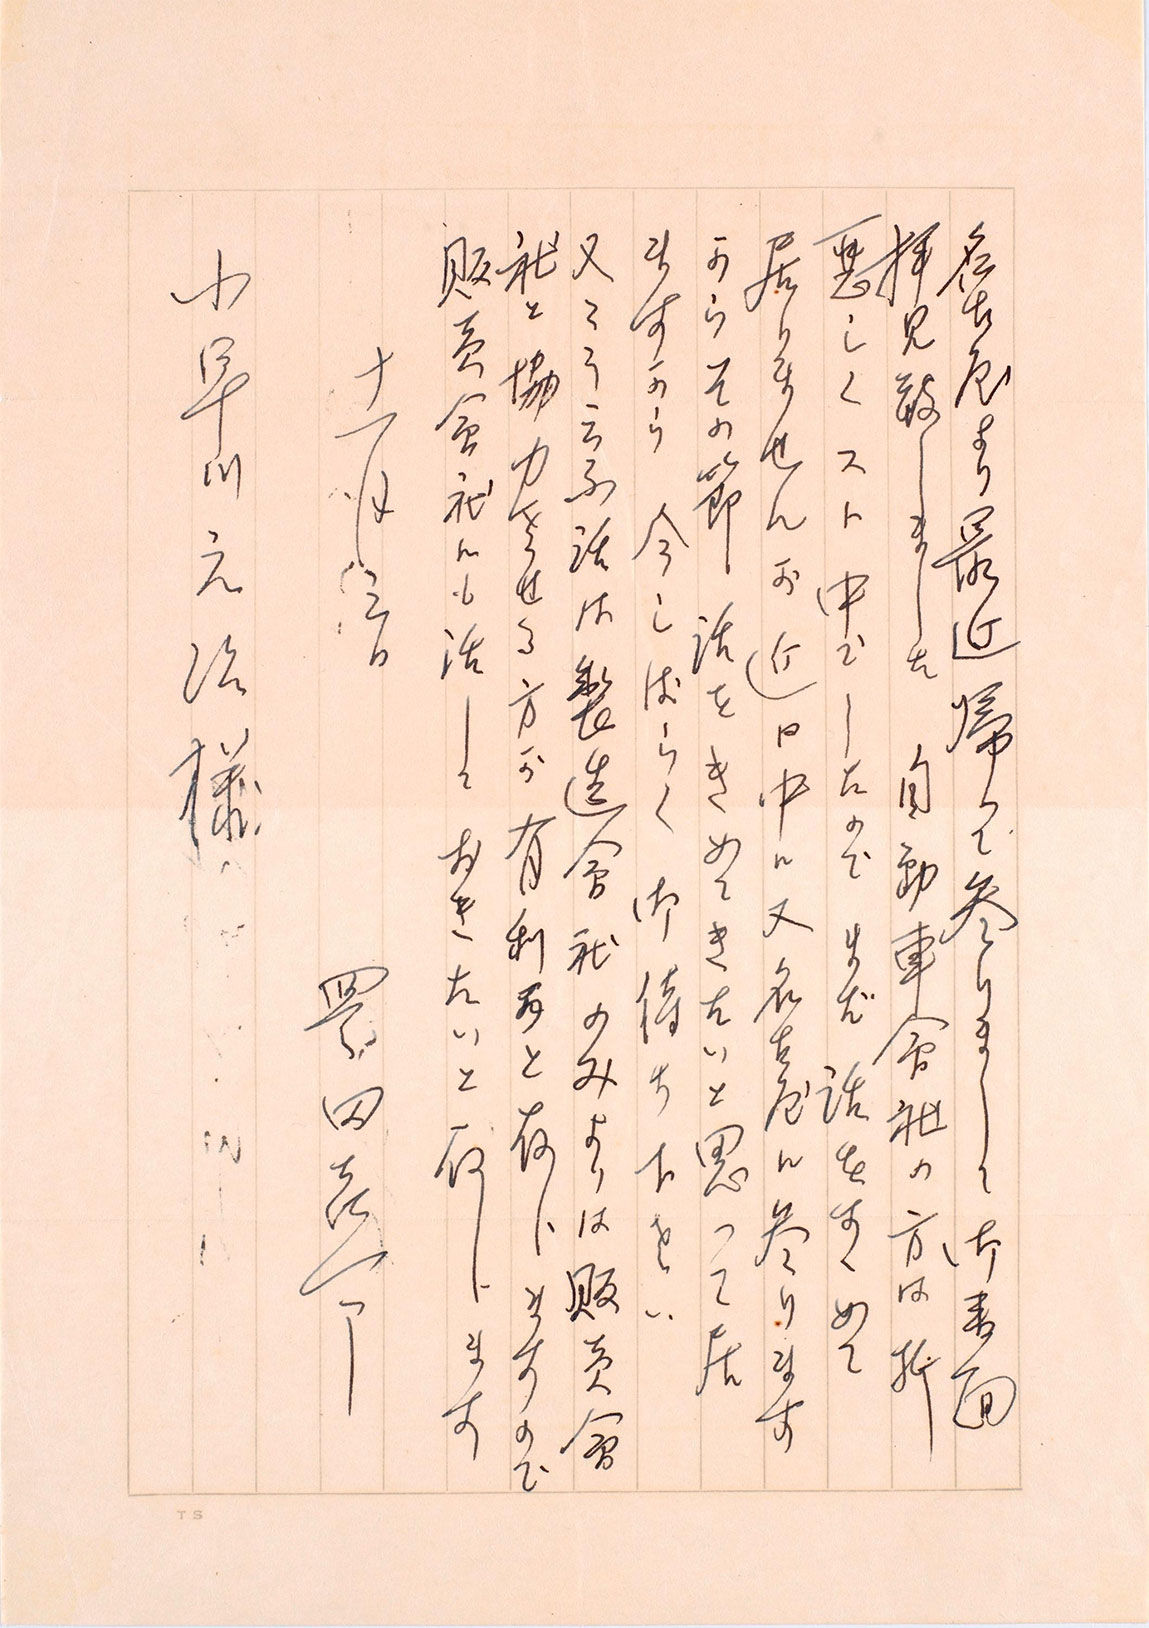 名古屋より最近帰って参りまして 御書面
拝見致しました 自動車会社の方は折
悪しくスト中でしたので まだ 話をすゝめて
居りませんが 近日中に又名古屋に参ります
からその節 話をきめてきたいと思って居
ますから 今しばらく 御待ち下さい
又こう云ふ話は製造会社のみよりは販賣會
社と協力させる方が有利かと存じますので
販賣會社にも話して おきたいと存じます
十一月三日
豊田喜一
小早川元治様
TS